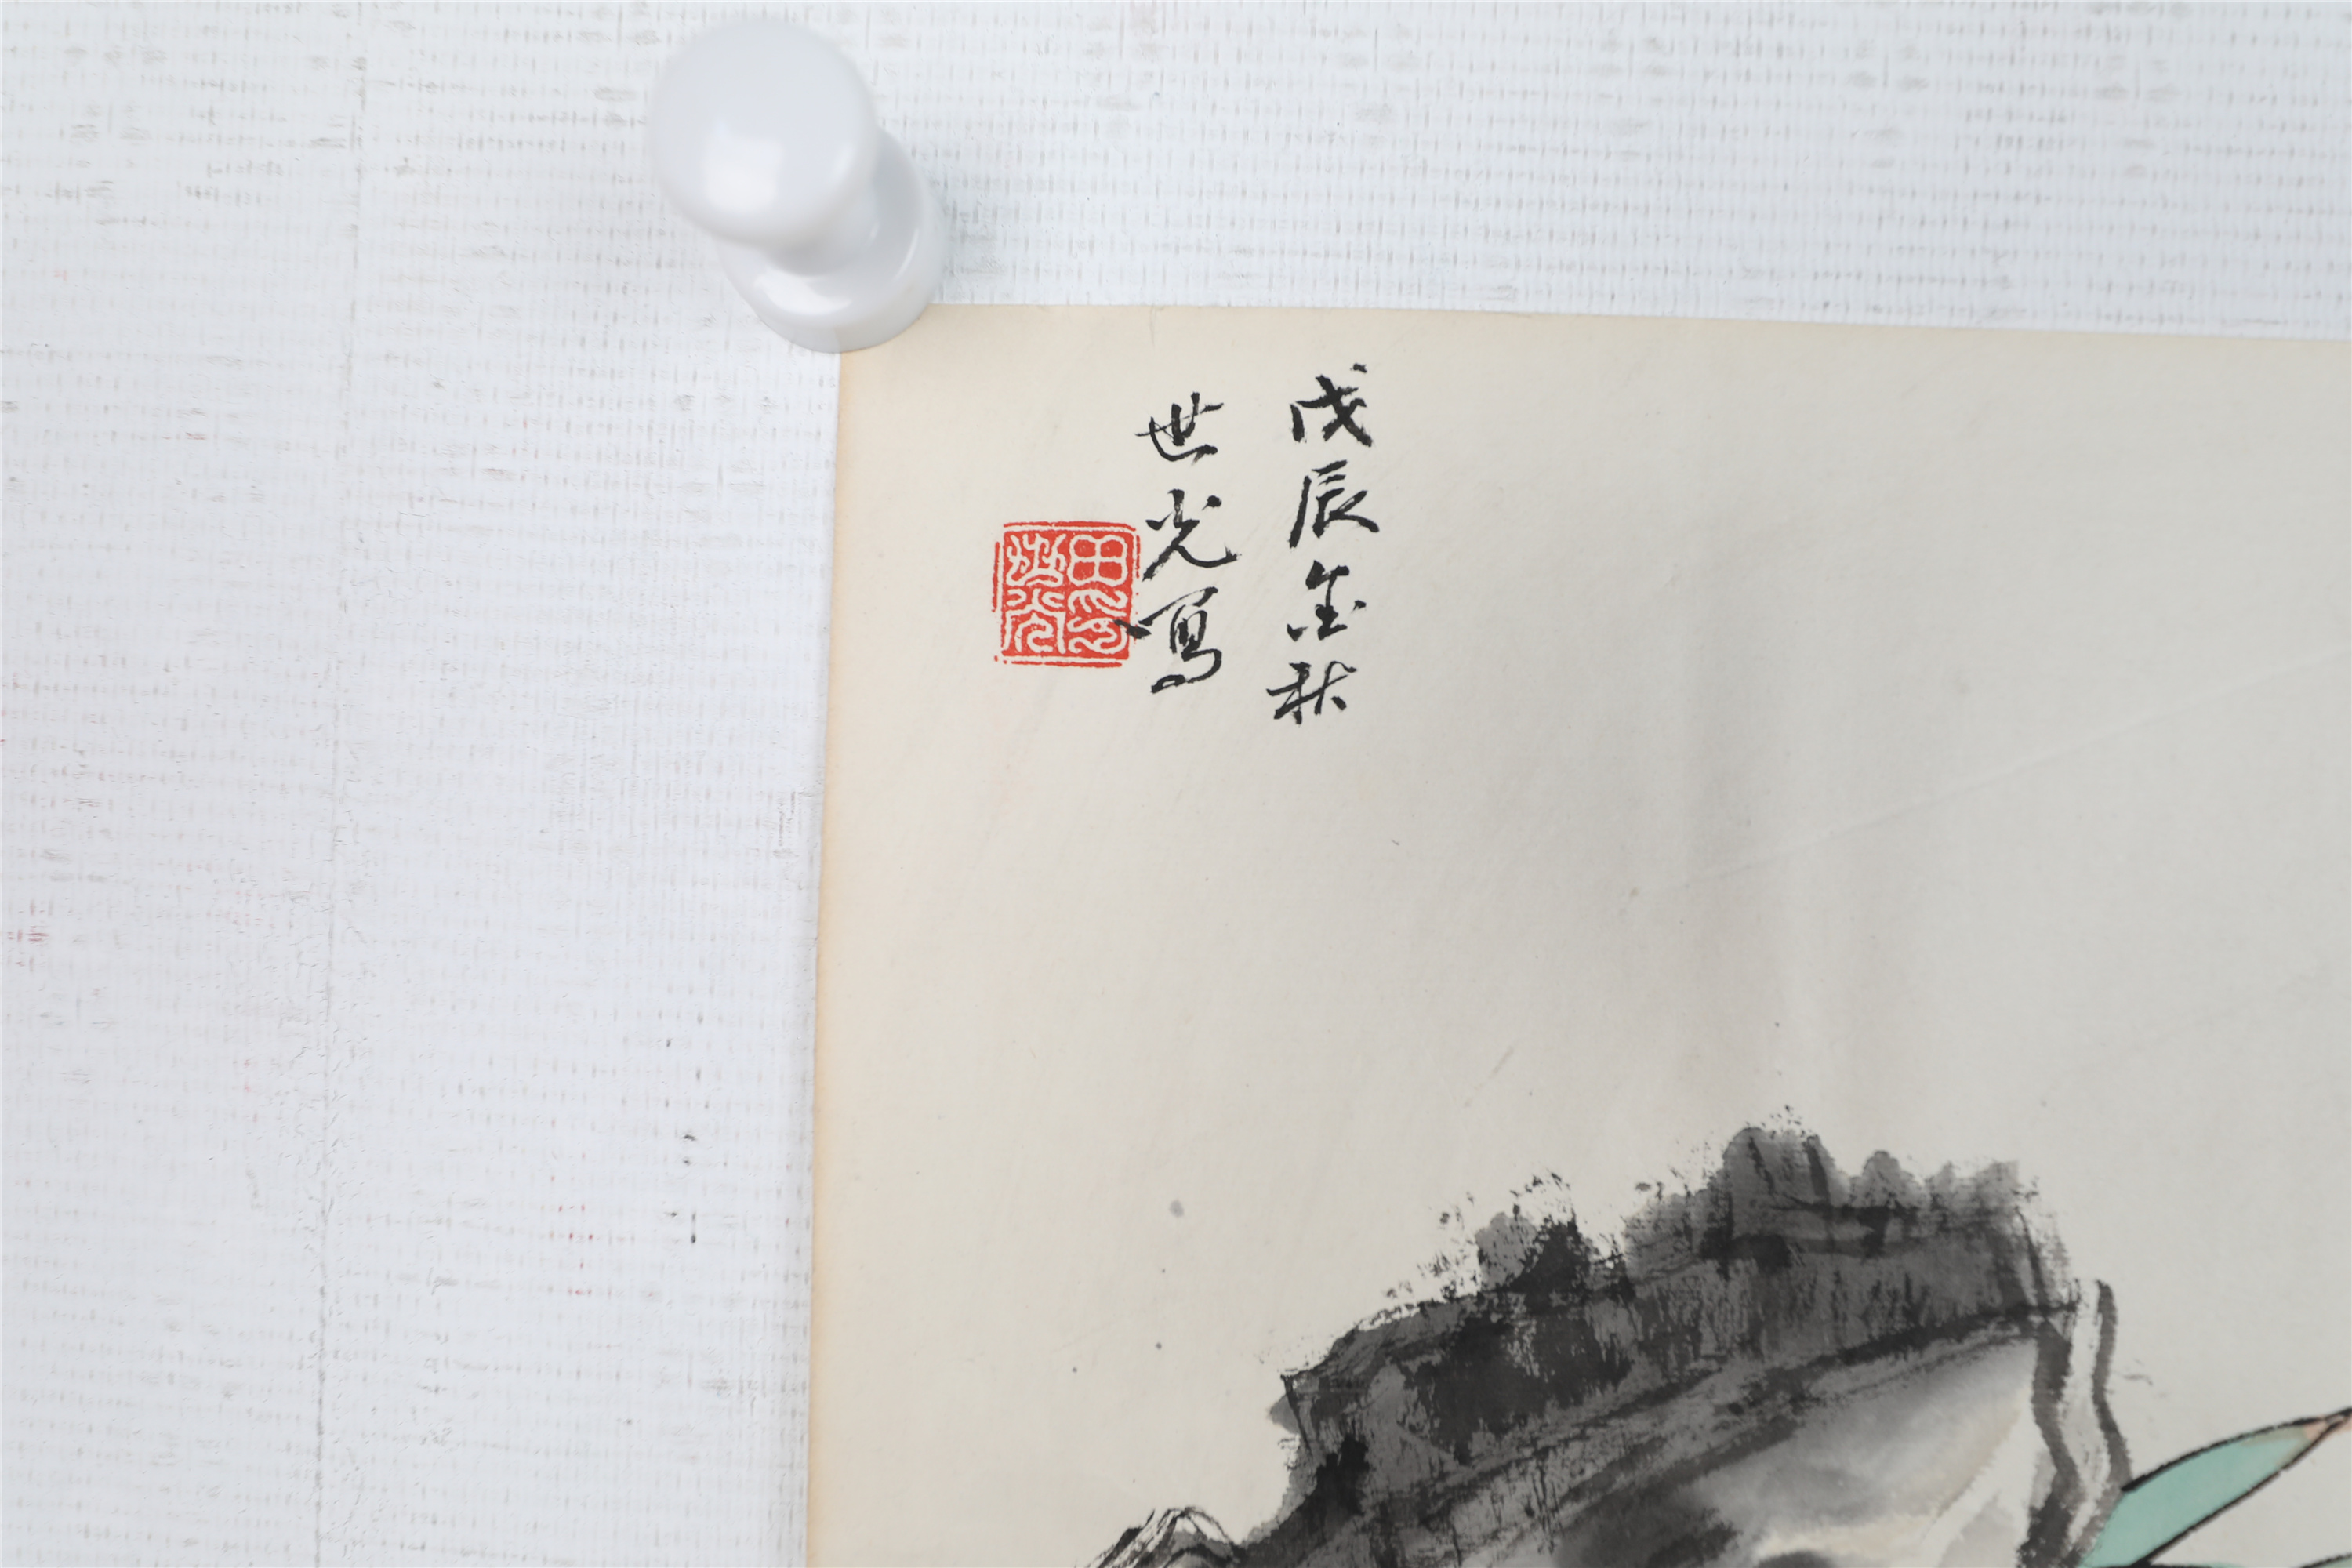 戊辰金秋
世光寫
田世光印